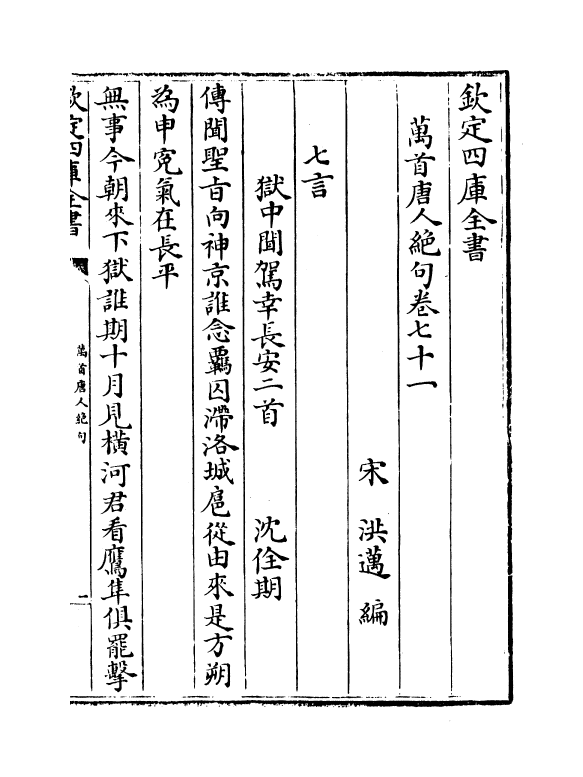 欽定四庫全書
萬首唐人絶句卷七十一
宋　洪邁　編
七言
獄中聞駕幸長安二首　沈佺期
傳聞聖旨向神京誰念羈囚滯洛城扈從由來是方朔
為申寃氣在長平
無事今朝來下獄誰期十月見橫河君看鷹隼俱罷擊
欽定四庫全書
萬首唐人絶句
一